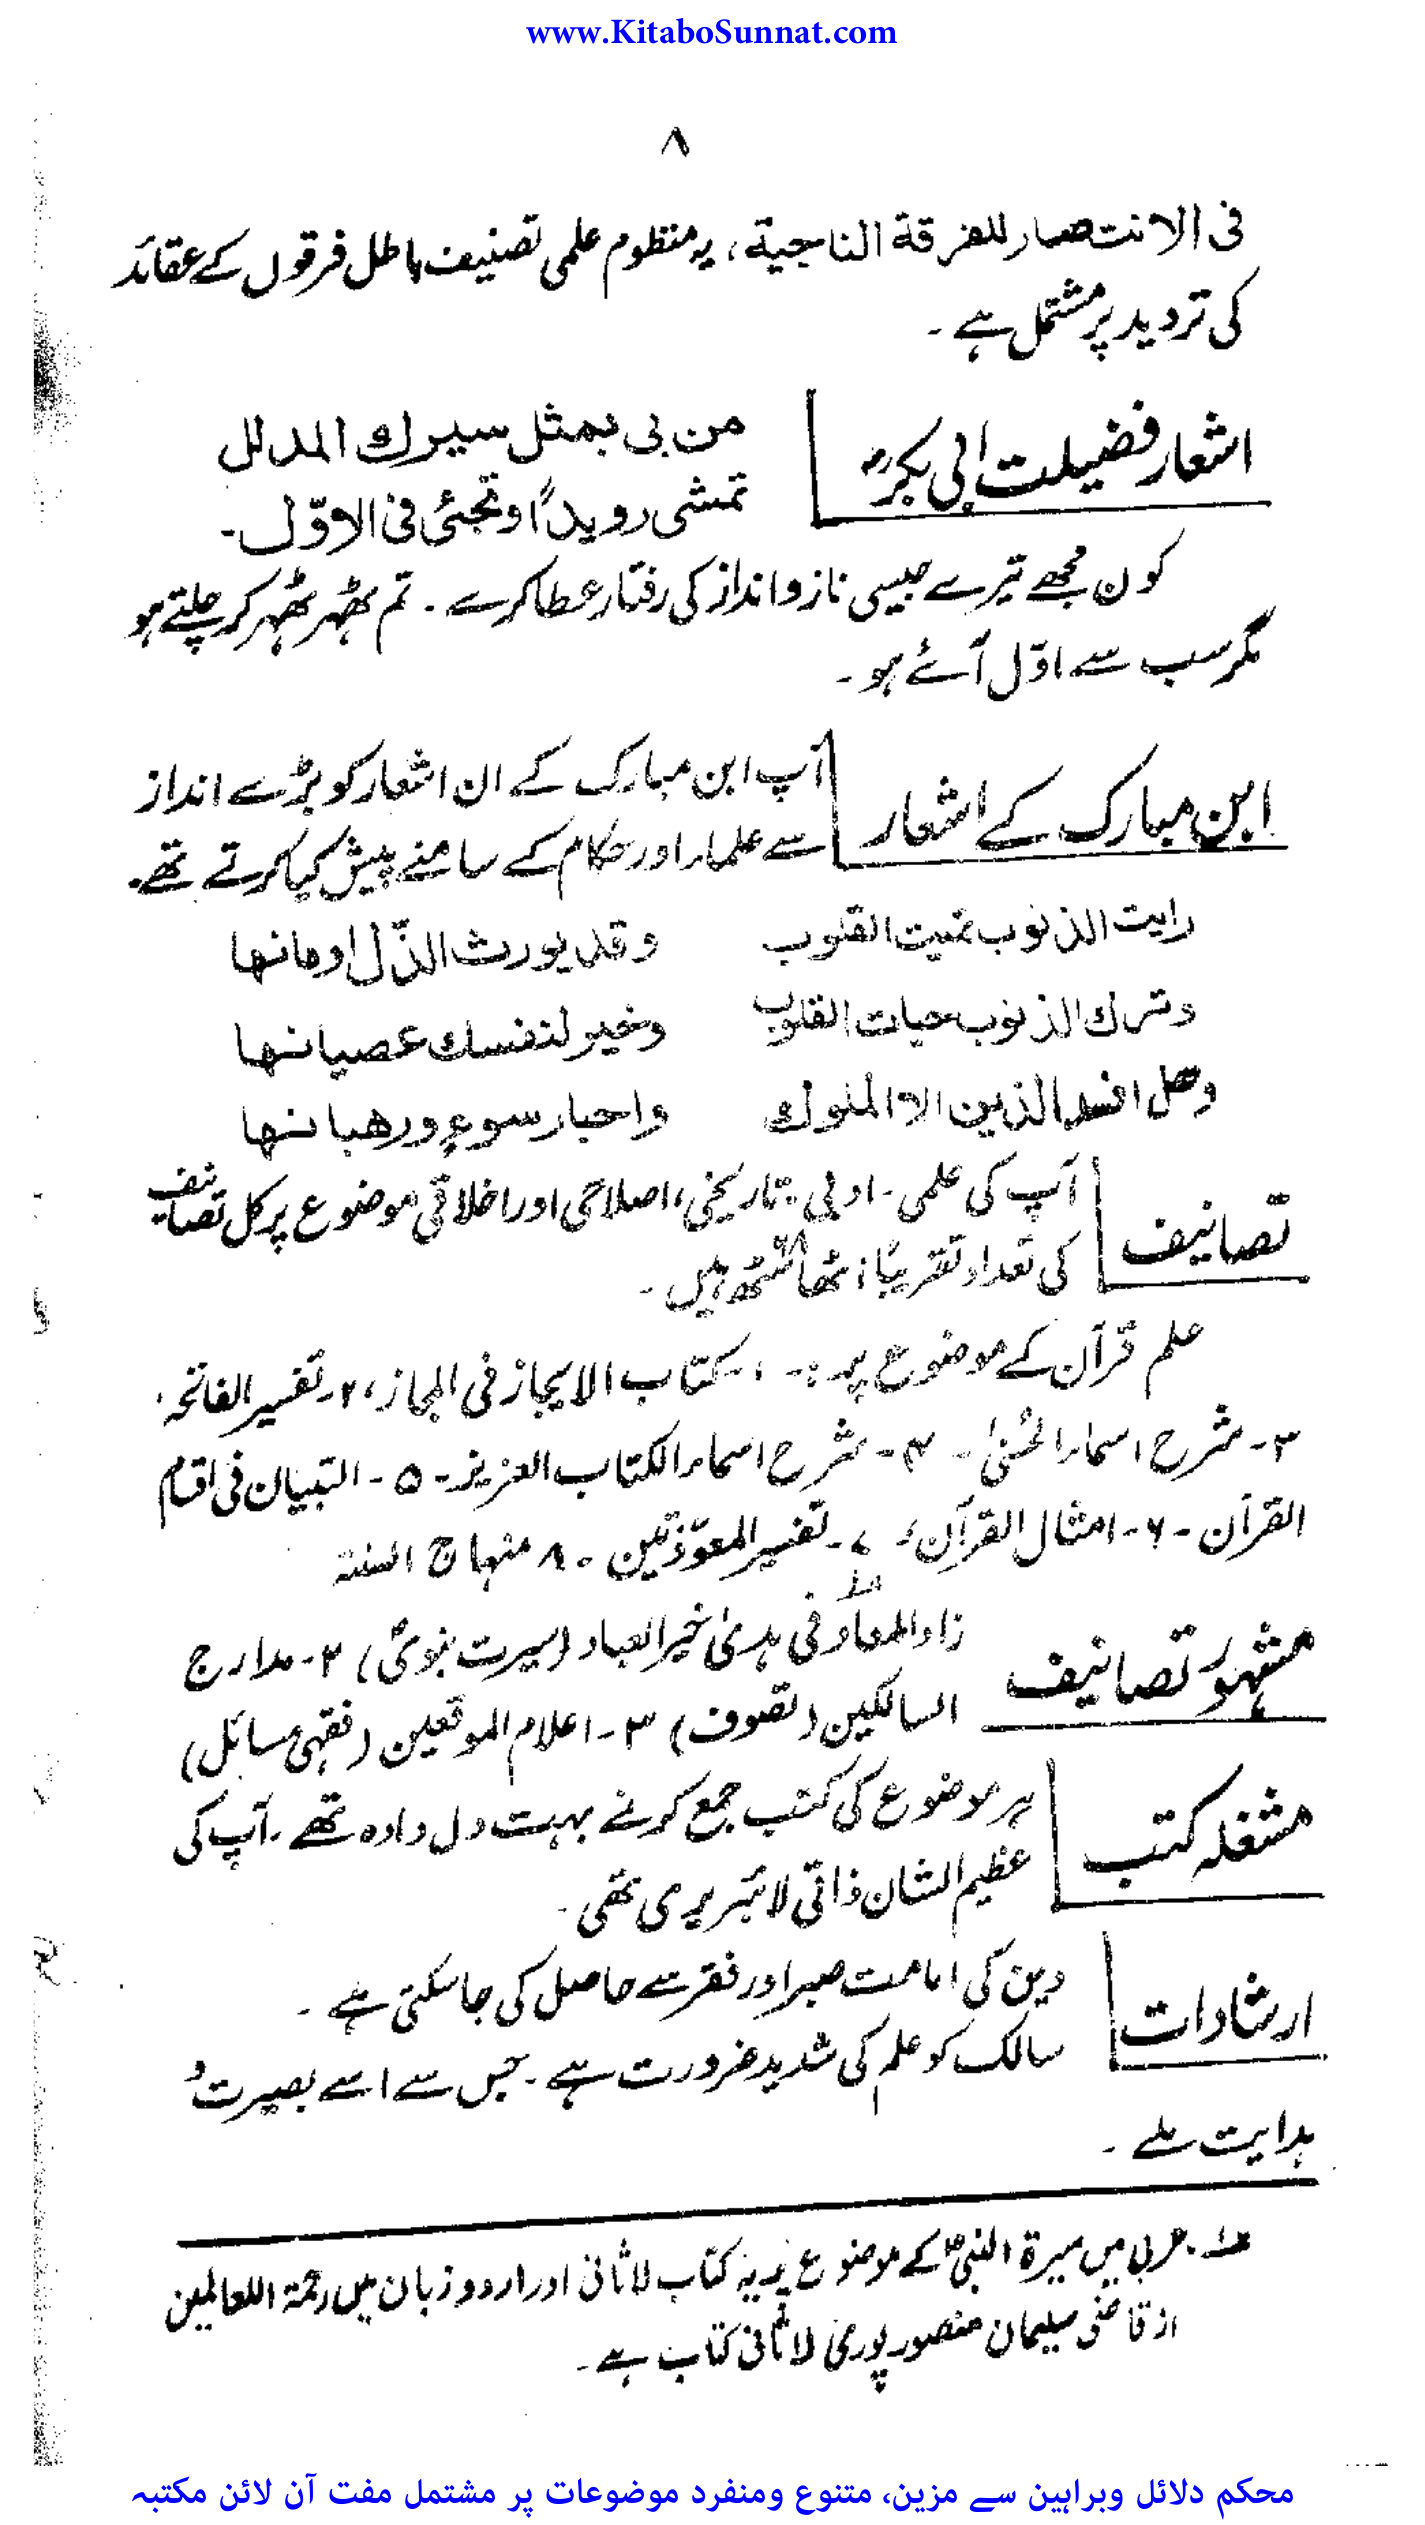 www.KitaboSunnat.com
۸
فی الانتصار للفرقة الناجیة، یہ منظوم علمی تصنیف باطل فرقوں کے عقائد
کی تردید پر مشتمل ہے ۔
اشعار فضیلت ابی بکرؓ
من بی بمثل سیرك المدلل
تمشی رویداً وتجئی فی الاوّل۔
کون مجھے تیرے جیسی ناز و انداز کی رفتار عطا کرے ۔ تم ٹھہر ٹھہر کر چلتے ہو
مگر سب سے اوّل آئے ہو ۔
ابن مبارک کے اشعار
آپ ابن مبارک کے ان اشعار کو بڑے انداز
سے علماء اور حکام کے سامنے پیش کیا کرتے تھے۔
رایت الذنوب تمیت القلوب وقد یورث الذّل اومانها
وترك الذنوب حیات القلوب وخیر لنفسك عصیانها
وهل افسد الذین الا الملوك واحبار سوءٍ ورهبانها
تصانیف
آپ کی علمی ۔ ادبی ۔ تاریخی، اصلاحی اور اخلاقی موضوع پر کل تصانیف
کی تعداد تقریبًا اٹھاسٹھ ہیں ۔
علم قرآن کے موضوع پر :۔ ۱۔ کتاب الایجاز فی المجاز، ۲۔ تفسیر الفاتحہ
۳۔ شرح اسماء الحُسنیٰ ۔ ۴۔ شرح اسماء الکتاب العزیز ۔ ۵ ۔ التبیان فی اقسام
القرآن ۔ ۶ ۔ امثال القرآن، ۷ ۔ تفسیر المعوّذتین ۔ ۸ منہاج السنتہ
مشہور تصانیف
زاد المعاد فی ہدیٰ خیر العباد (سیرت نبویؐ) ۲۔ مدارج
السالکین (تصوف) ۳۔ اعلام الموقعین (فقہی مسائل)
مشغلہ کتب
ہر موضوع کی کتب جمع کرنے بہت دل دادہ تھے ۔ آپ کی
عظیم الشان ذاتی لائبریری تھی ۔
ارشادات
دین کی امامت صبر اور فقر سے حاصل کی جا سکتی ہے ۔
سالک کو علم کی شدید ضرورت ہے ۔ جس سے اسے بصیرت و
ہدایت ملے ۔
۱۔ عربی میں سیرۃ النبیؐ کے موضوع پر یہ کتاب لاثانی اور اردو زبان میں رحمۃ اللعالمین
از قاضی سلیمان منصور پوری لاثانی کتاب ہے ۔
محکم دلائل وبراہین سے مزین، متنوع ومنفرد موضوعات پر مشتمل مفت آن لائن مکتبہ